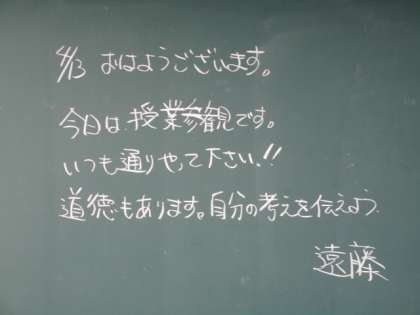 4/13 おはようございます。
今日は授業参観です。
いつも通りやって下さい!!
道徳もあります。自分の考えを伝えよう.
遠藤